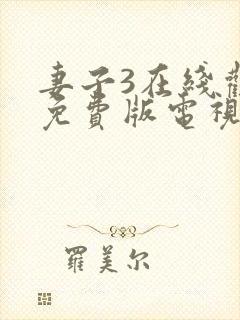 妻子3在线
免費版電視
羅美尔